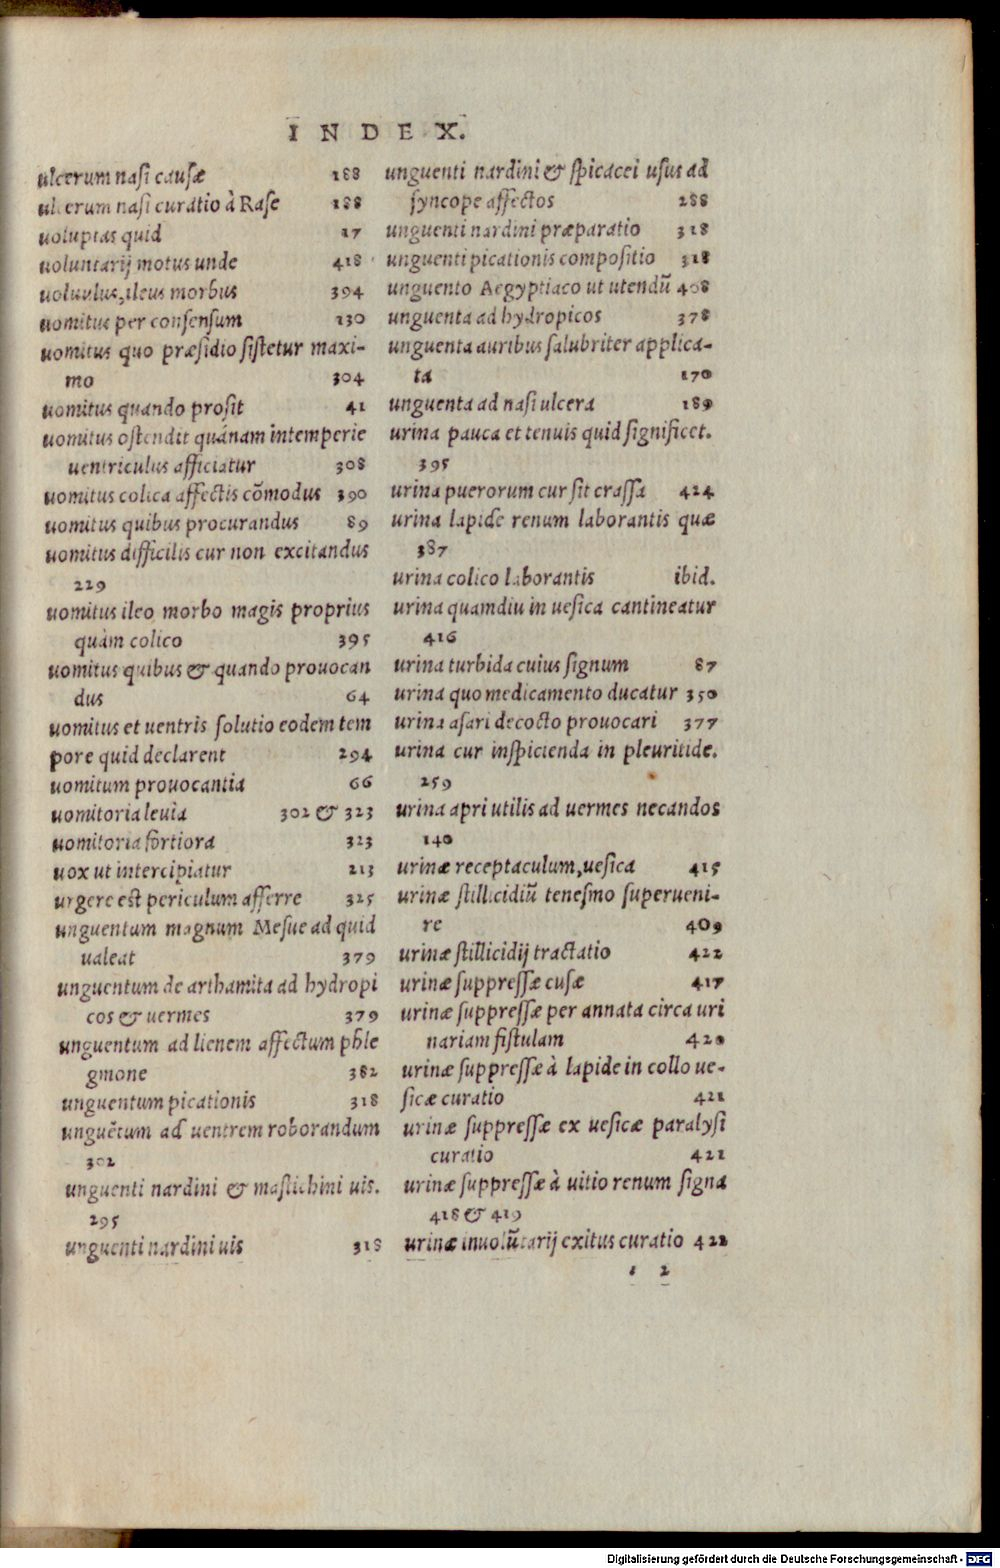 INDEX.
ulcerum nasi causæ 188
ulcerum nasi curatio à Rase 188
uoluptas quid 17
uoluntarij motus unde 418
uoluulus, ileus morbus 394
uomitus per consensum 130
uomitus quo præsidio sistetur maxi-
mo 304
uomitus quando prosit 41
uomitus ostendit quánam intemperie
uentriculus afficiatur 308
uomitus colica affectis cōmodus 390
uomitus quibus procurandus 89
uomitus difficilis cur non excitandus
229
uomitus ileo morbo magis proprius
quàm colico 395
uomitus quibus & quando prouocan
dus 64
uomitus et uentris solutio eodem tem
pore quid declarent 294
uomitum prouocantia 66
uomitoria leuia 302 & 323
uomitoria fortiora 323
uox ut intercipiatur 213
urgere est periculum afferre 325
unguentum magnum Mesue ad quid
ualeat 379
unguentum de arthamita ad hydropi
cos & uermes 379
unguentum ad lienem affectum phle
gmone 382
unguentum picationis 318
unguētum ad uentrem roborandum
302
unguenti nardini & mastichini uis.
295
unguenti nardini uis 318
unguenti nardini & spicacei usus ad
syncope affectos 288
unguenti nardini præparatio 318
unguenti picationis compositio 318
unguento Aegyptiaco ut utendū 408
unguenta ad hydropicos 378
unguenta auribus salubriter applica-
ta 170
unguenta ad nasi ulcera 189
urina pauca et tenuis quid significet.
395
urina puerorum cur sit crassa 424
urina lapide renum laborantis quæ
387
urina colico laborantis ibid.
urina quamdiu in uesica cantineatur
416
urina turbida cuius signum 87
urina quo medicamento ducatur 350
urina asari decocto prouocari 377
urina cur inspicienda in pleuritide.
259
urina apri utilis ad uermes necandos
140
urinæ receptaculum, uesica 415
urinæ stillicidiū tenesmo superueni-
re 409
urinæ stillicidij tractatio 422
urinæ suppressæ cusæ 417
urinæ suppressæ per annata circa uri
nariam fistulam 420
urinæ suppressæ à lapide in collo ue-
sicæ curatio 421
urinæ suppressæ ex uesicæ paralysi
curatio 421
urinæ suppressæ à uitio renum signa
418 & 419
urinæ inuolūtarij exitus curatio 422
2
Digitalisierung gefördert durch die Deutsche Forschungsgemeinschaft - DFG